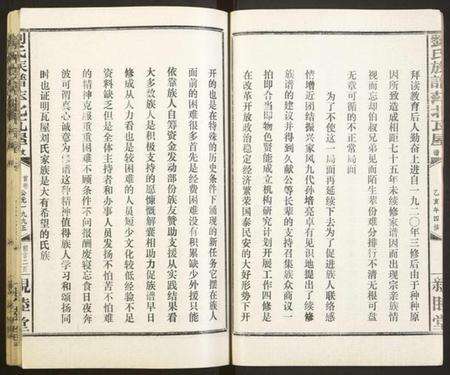 拜读教育后人勤奋上进自一九二〇年三修后由于种种原
因所致造成相距七十五年未续修家谱因而出现宗亲族情
视而忘却伯叔兄弟见而陌生辈份难分排行不清无根可盘
无章可循的不正常局面
为了不使这一局面再延续下去为了促进族人联络感
情增近团结振兴家风九代孙培亮卓有见识地提出了续修
家谱的建议并得到久献公等长辈的支持召集族众商议一
拍即合当即物色贤能成立机构研究计划开展工作四修是
在改革开放政治稳定经济繁荣国泰民安的大好形势下开
开的也是在特殊的历史条件下涌现的新任务它摆在族人
面前的费很多很多困难是经费困难没有积累缺少外援只能
依靠族人自筹资金发动部份族友赞助支援从实践结果看
大多数族人是积极支持的愿慷慨解囊相助力促族谱早日
修成从人力看也是较困难的人员少文化较低经验不足
资料缺乏但是全体主持者和办事人员发扬不怕苦不怕难
的精神克服重重困难不顾条件不问报酬废寝忘食日夜奔
波可谓真心诚意为修谱这种精神值得族人学习和颂扬同
时也证明瓦屋刘氏家族是大有希望的氏族
乙亥年四修
亲睦堂